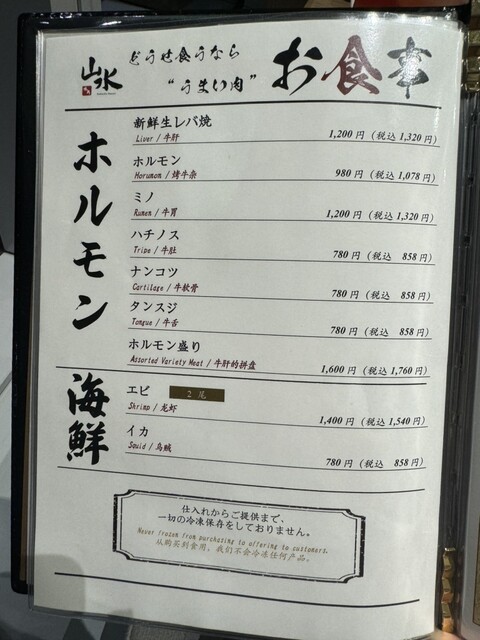 山水
どうせ食うなら
“うまい肉”
お食事
ホルモン
新鮮生レバ焼
Liver / 牛肝
1,200 円 (税込 1,320 円)
ホルモン
Horumon / 烤牛杂
980 円 (税込 1,078 円)
ミノ
Rumen / 牛胃
1,200 円 (税込 1,320 円)
ハチノス
Tripe / 牛肚
780 円 (税込 858 円)
ナンコツ
Cartilage / 牛软骨
780 円 (税込 858 円)
タンスジ
Tongue / 牛舌
780 円 (税込 858 円)
ホルモン盛り
Assorted Variety Meat / 牛肝的拼盘
1,600 円 (税込 1,760 円)
海鮮
エビ 2 尾
Shrimp / 龙虾
1,400 円 (税込 1,540 円)
イカ
Squid / 乌贼
780 円 (税込 858 円)
仕入れからご提供まで、
一切の冷凍保存をしておりません。
Never frozen from purchasing to offering to customers.
从购买到食用，我们不会冷冻任何产品。